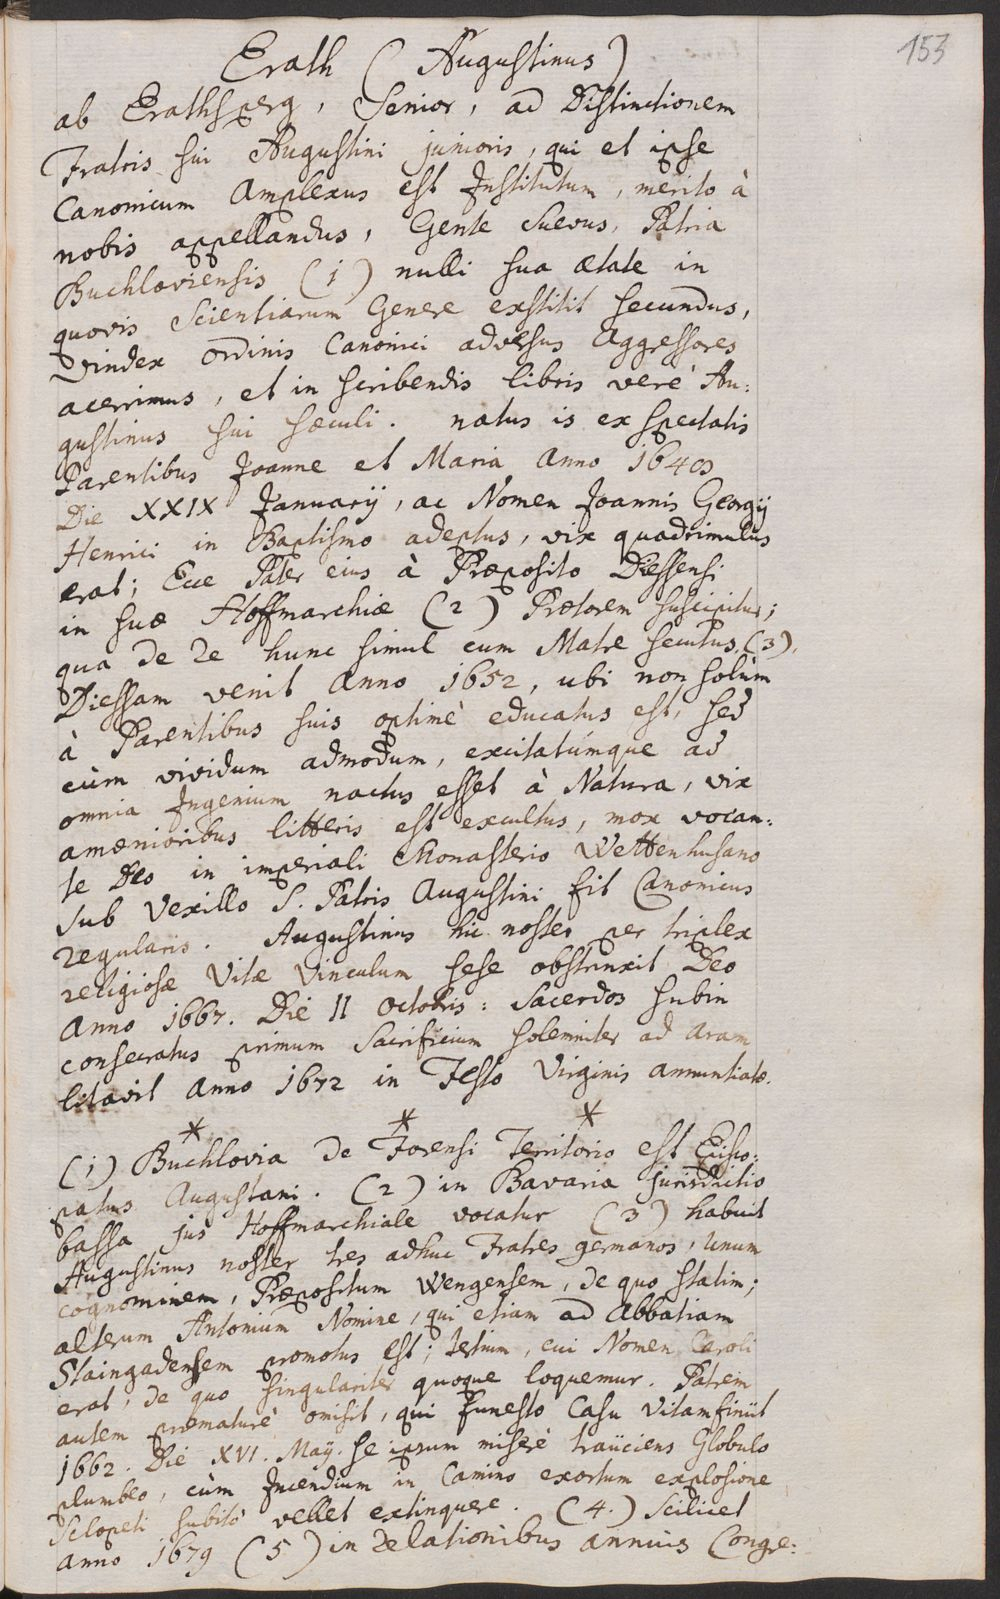 153
Erath (Augustinus)
ab Erathsperg, Senior, ad Distinctionem
Fratris sui Augustini junioris, qui et ipse
Canonicum Amplexus est Institutum, merito à
nobis appellandus, Gente Suevus, Patria
Buchloviensis (1) nulli sua ætate in
quovis Scientiarum Genere exstitit secundus,
Vindex ordinis Canonici adversus Aggressores
acerrimus, et in scribendis libris verè Au:
gustinus sui sæculi. natus is ex spectatis
Parentibus Joanne et Maria Anno
Die XXIX Januarij, ac Nomen Joannis Georgij
Henrici in Baptismo adeptus, vix quadrimulus
erat; Ecce Pater eius à Præposito Diessensi
in suæ Hoffmarchiæ (2) Prætorem suscipitur;
qua de re hunc simul cum Matre secutus (3),
Diessam venit Anno 1652, ubi non solùm
à Parentibus suis optimè educatus est, sed
cùm vividum admodum, excitatúmque ad
omnia Ingenium nactus esset à Natura, vix
amænioribus litteris est excultus, mox vocan:
te Deo in imperiali Monasterio Wettenhusano
sub Vexillo S. Patris Augustini fit Canonicus
regularis. Augustinus hic noster per triplex
religiosæ Vitæ Vinculum sese obstrinxit Deo
Anno 1667. Die 11 octobris: Sacerdos subin
consecratus primum Sacrificium solemniter ad Aram
litavit Anno 1672 in Festo Virginis annuntiatæ.
* * *
(1) Buchlovia de Forensi Territorio est Episco:
patus Augustani. (2) in Bavaria jurisdictio
bassa jus Hoffmarchiale vocatur (3) habuit
Augustinus noster tres adhuc Fratres germanos, unum
cognominem, Præpositum Wengensem, de quo statim;
alterum Antonium Nomine, qui etiam ad Abbatiam
Staingadensem promotus est; tertium, cui Nomen Caroli
erat, de quo singulariter quoque loquemur. Patrem
autem præmaturè omisit, qui funesto Casu vitam finiit
1662. Die XVI. Maÿ. se ipsum miserè traiiciens Globulo
plumbeo, cùm Incendium in Camino exortum explosione
Sclopeti subitò vellet extinguere. (4.) Scilicet
anno 1679 (5) in relationibus annuis Congre: